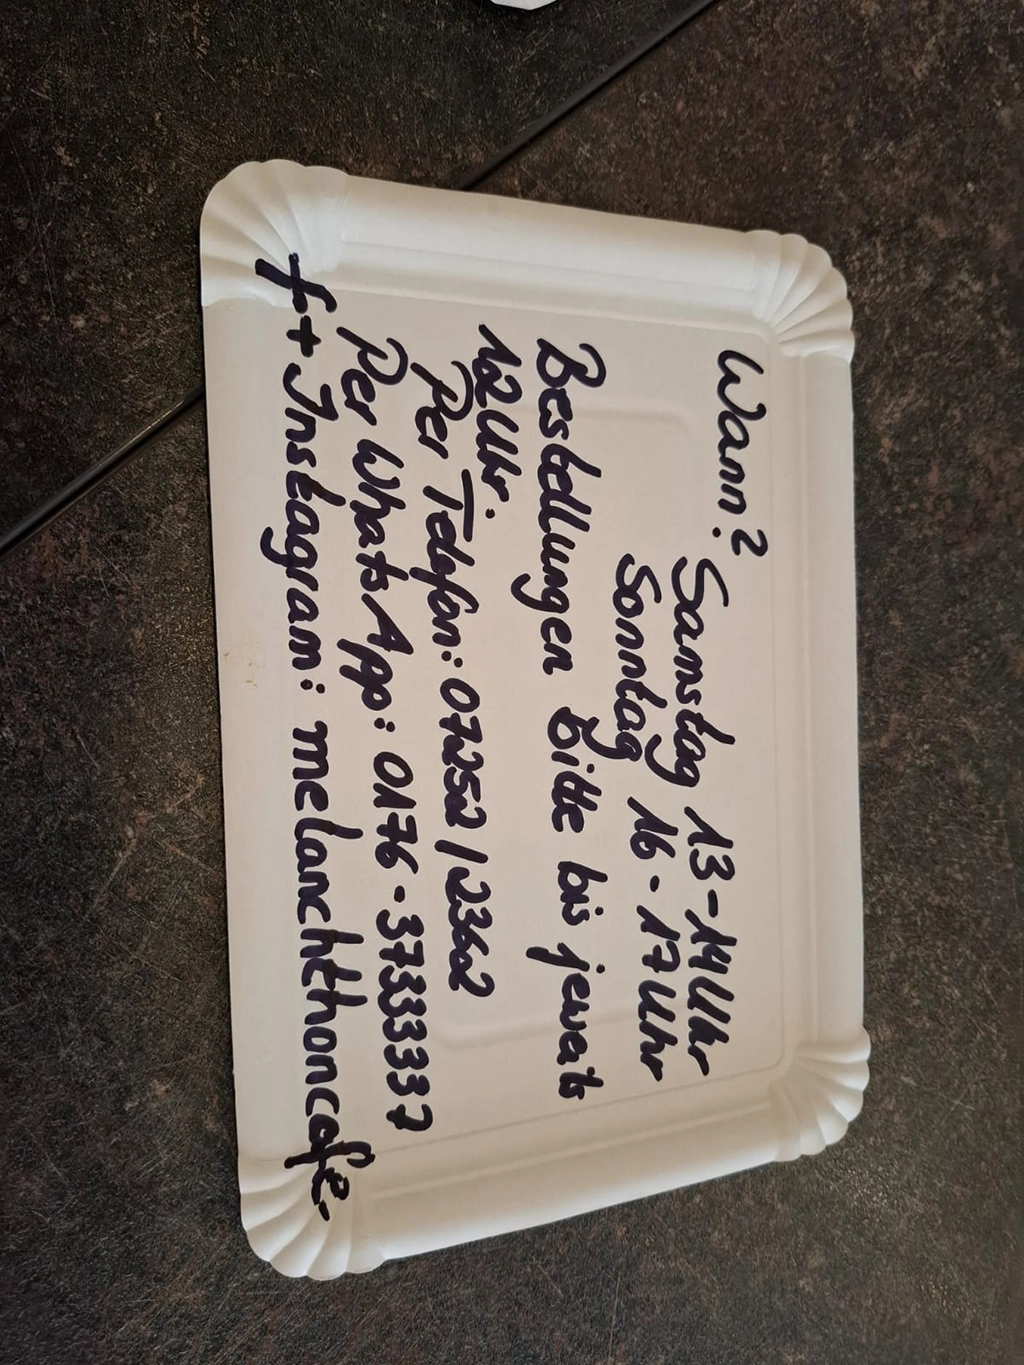 Wann? Samstag 13-14Uhr
Sonntag 16-17Uhr
Bestellungen Bitte bis jeweils
12Uhr.
Per Telefon: 07252/2362
Per WhatsApp: 0176-37333337
f+Instagram: melanchthoncafe-